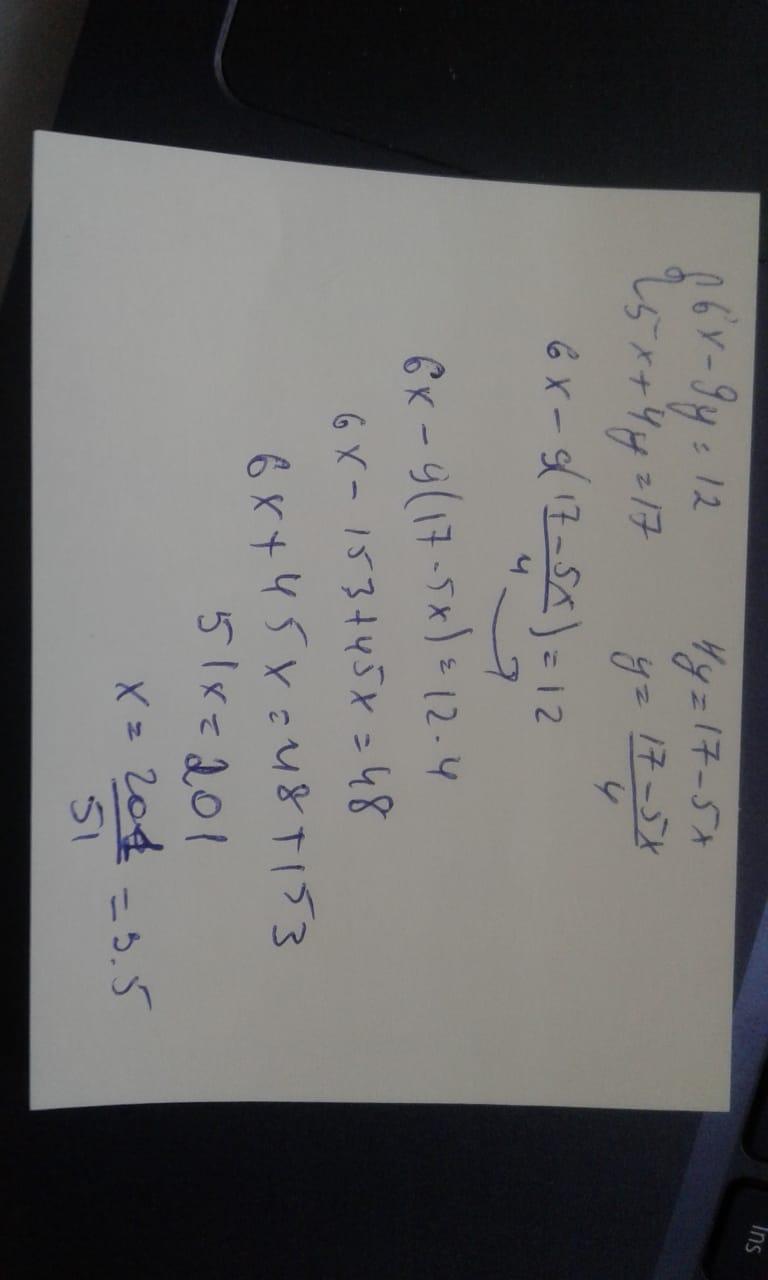 {6x-9y=12
{5x+4y=17
4y=17-5x
y=17-5x/4
6x-9(17-5x/4)=12
6x-9(17-5x)=12.4
6x-153+45x=48
6x+45x=48+153
51x=201
x=201/51=3.5
Ins